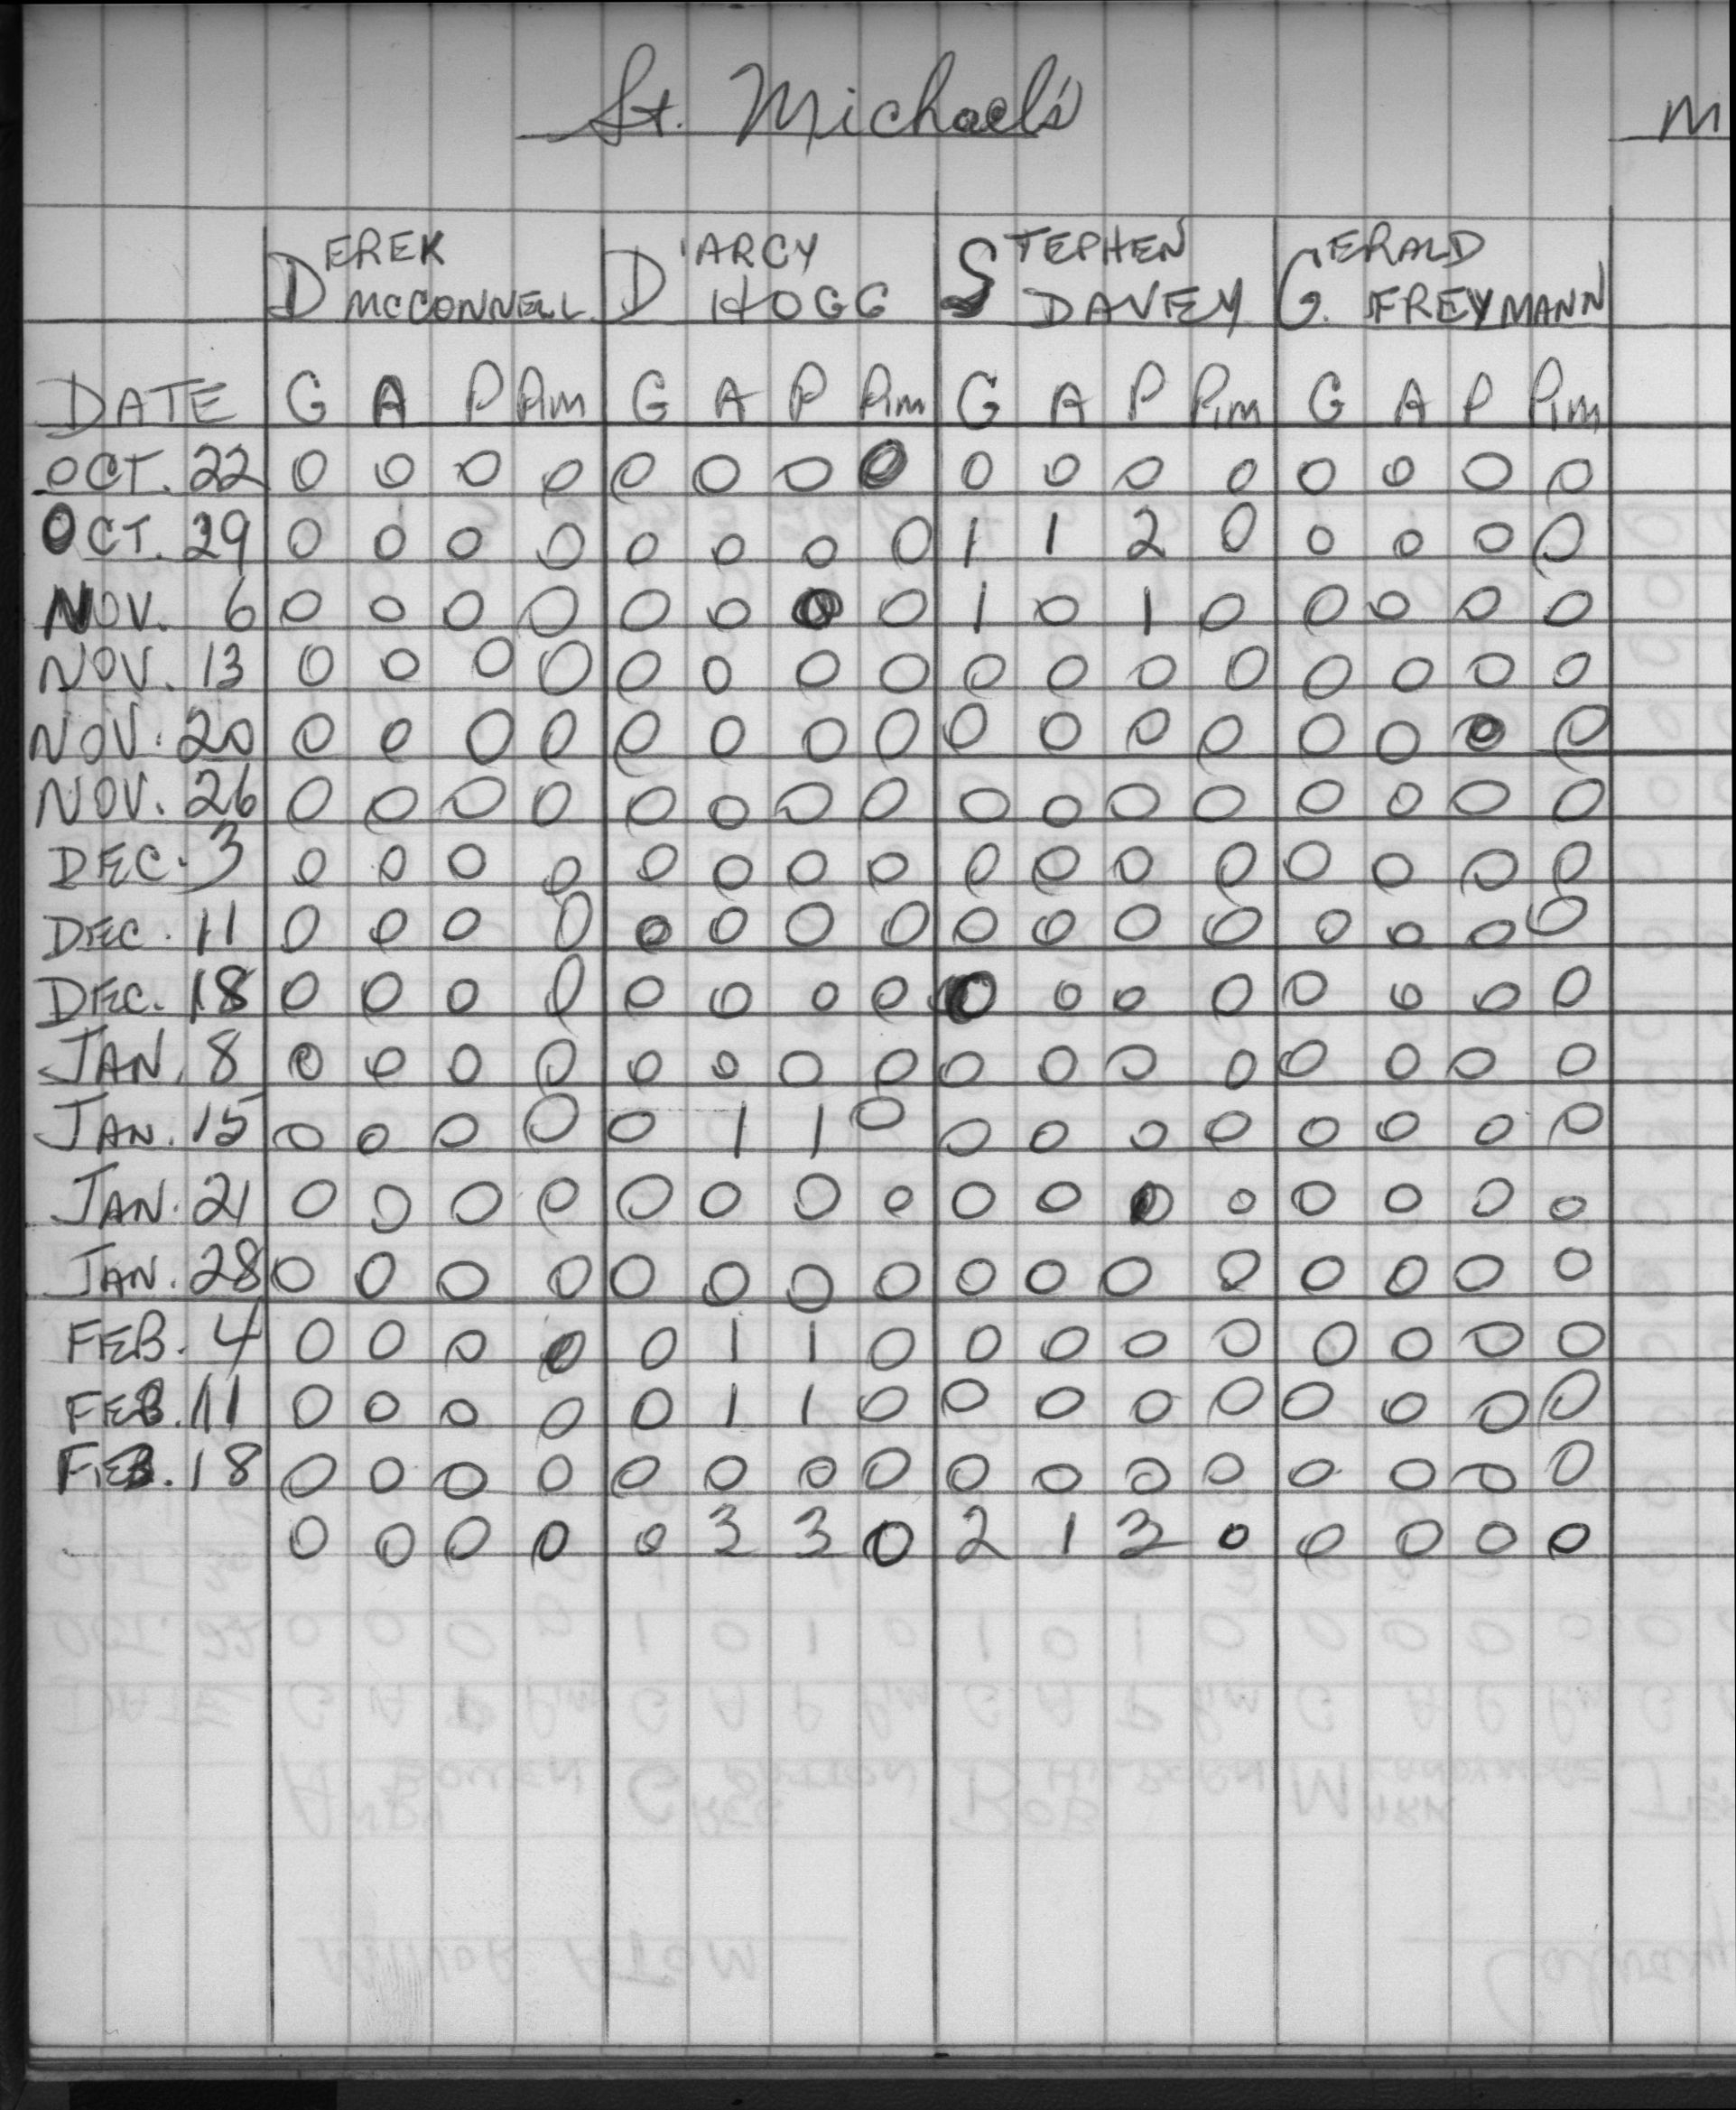 St. Michael's M
DEREK D'ARCY STEPHEN GERALD
MCCONNELL HOGG DAVEY G. FREYMANN
DATE G A P Pim G A P Pim G A P Pim G A P Pim
OCT. 22 0 0 0 0 0 0 0 0 0 0 0 0 0 0 0 0
OCT. 29 0 0 0 0 0 0 0 0 1 1 2 0 0 0 0 0
NOV. 6 0 0 0 0 0 0 0 0 1 0 1 0 0 0 0 0
NOV. 13 0 0 0 0 0 0 0 0 0 0 0 0 0 0 0 0
NOV. 20 0 0 0 0 0 0 0 0 0 0 0 0 0 0 0 0
NOV. 26 0 0 0 0 0 0 0 0 0 0 0 0 0 0 0 0
DEC. 3 0 0 0 0 0 0 0 0 0 0 0 0 0 0 0 0
DEC. 11 0 0 0 0 0 0 0 0 0 0 0 0 0 0 0 0
DEC. 18 0 0 0 0 0 0 0 0 0 0 0 0 0 0 0 0
JAN. 8 0 0 0 0 0 0 0 0 0 0 0 0 0 0 0 0
JAN. 15 0 0 0 0 0 1 1 0 0 0 0 0 0 0 0 0
JAN. 21 0 0 0 0 0 0 0 0 0 0 0 0 0 0 0 0
JAN. 28 0 0 0 0 0 0 0 0 0 0 0 0 0 0 0 0
FEB. 4 0 0 0 0 0 1 1 0 0 0 0 0 0 0 0 0
FEB. 11 0 0 0 0 0 1 1 0 0 0 0 0 0 0 0 0
FEB. 18 0 0 0 0 0 0 0 0 0 0 0 0 0 0 0 0
0 0 0 0 0 3 3 0 2 1 3 0 0 0 0 0